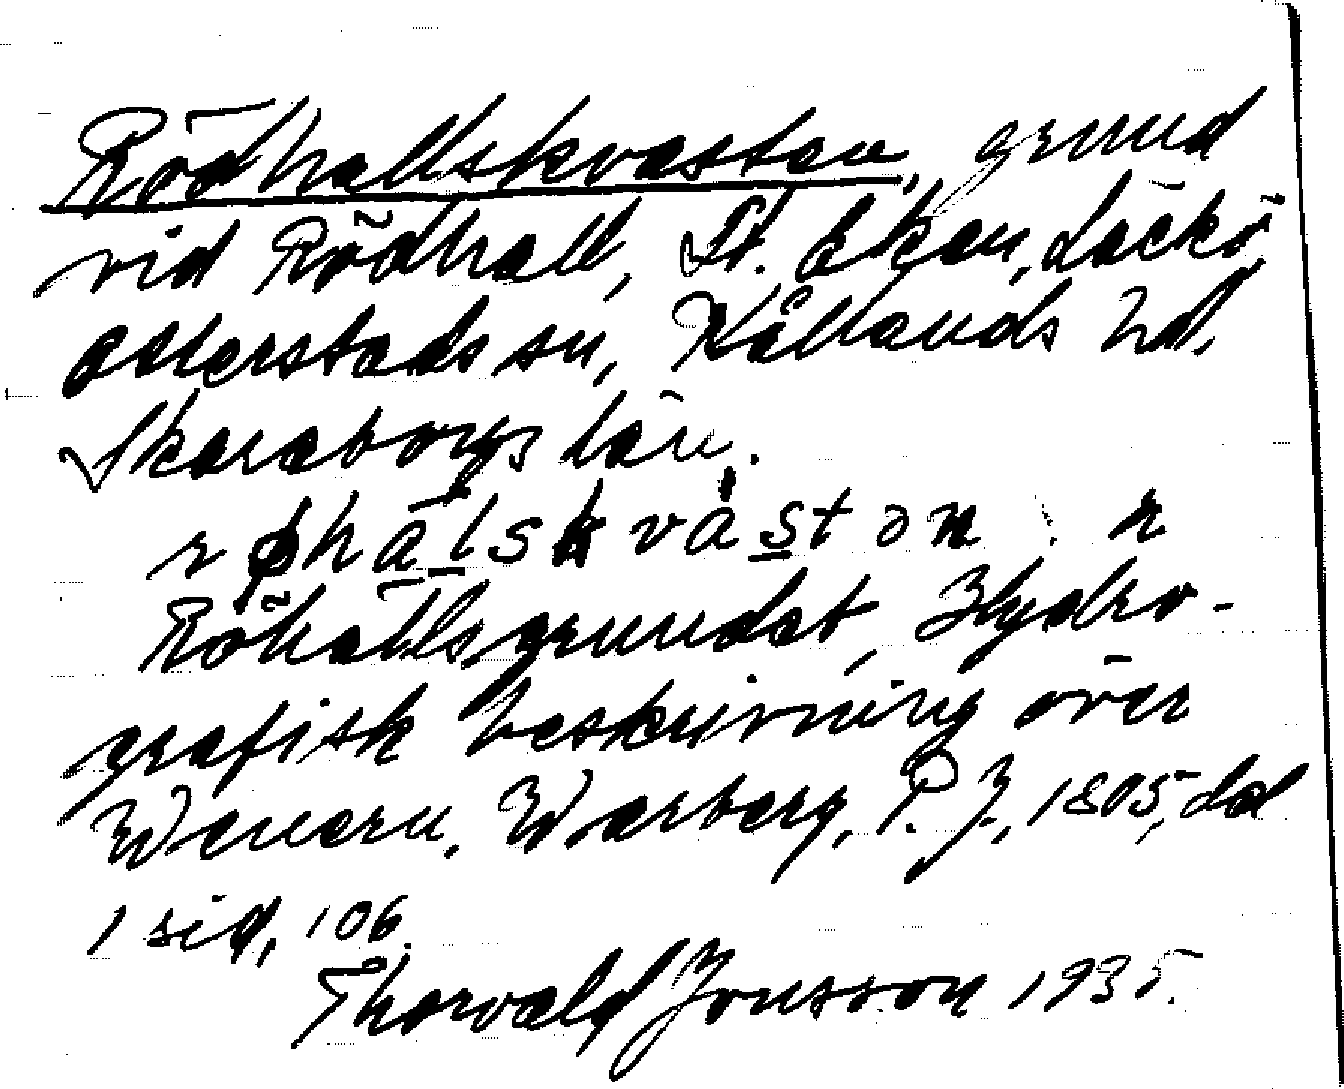 Rödhallskvasten, grund
vid Rödhall, St. Eken, Läckö,
Otterstads sn, Kållands hd.
Skaraborgs län.
Röhallsgrundet, Hydro-
grafisk beskrivning över
Wenern, Warberg, P. J., 1805, del
1 sid, 106.
Thorvald Jonsson 1935.